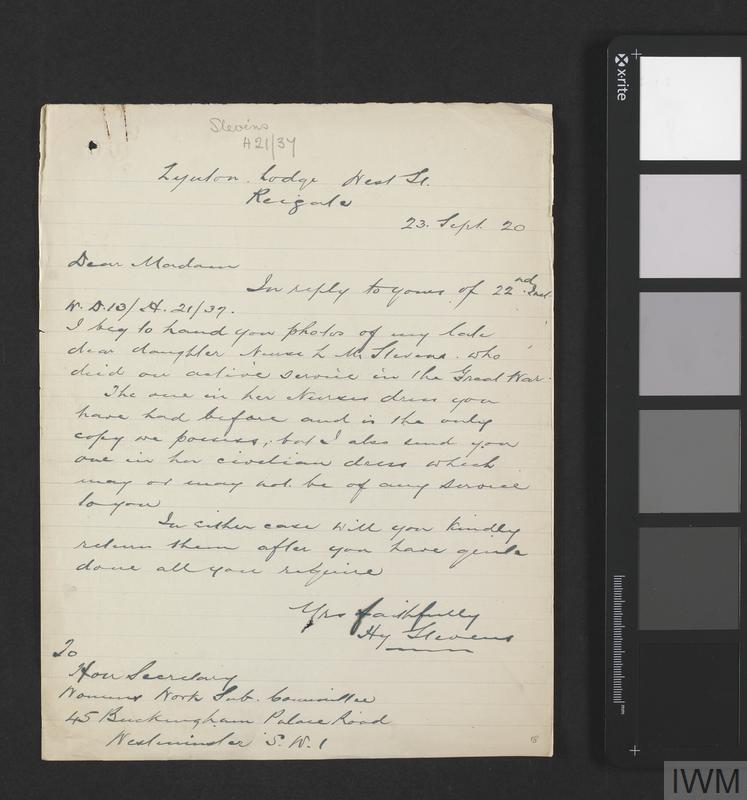 Stevins
H21/37
Lynton Lodge West St.
Reigate
23. Sept. 20
Dear Madam
In reply to yours of 22nd Inst
W.D.13/H.21/37.
I beg to hand you photos of my late
dear daughter Nurse L M. Stevens. who
died on active service in the Great War.
The one in her Nurses dress you
have had before and is the only
copy we possess, but I also send you
one in her civilian dress which
may or may not be of any service
to you
In either case will you kindly
return them after you have quite
done all you require
Yrs faithfully
Hy Stevens
To
Hon Secretary
Womens Work Sub. Committee
45 Buckingham Palace Road
Westminster S.W.1
18
x-rite
mm
IWM